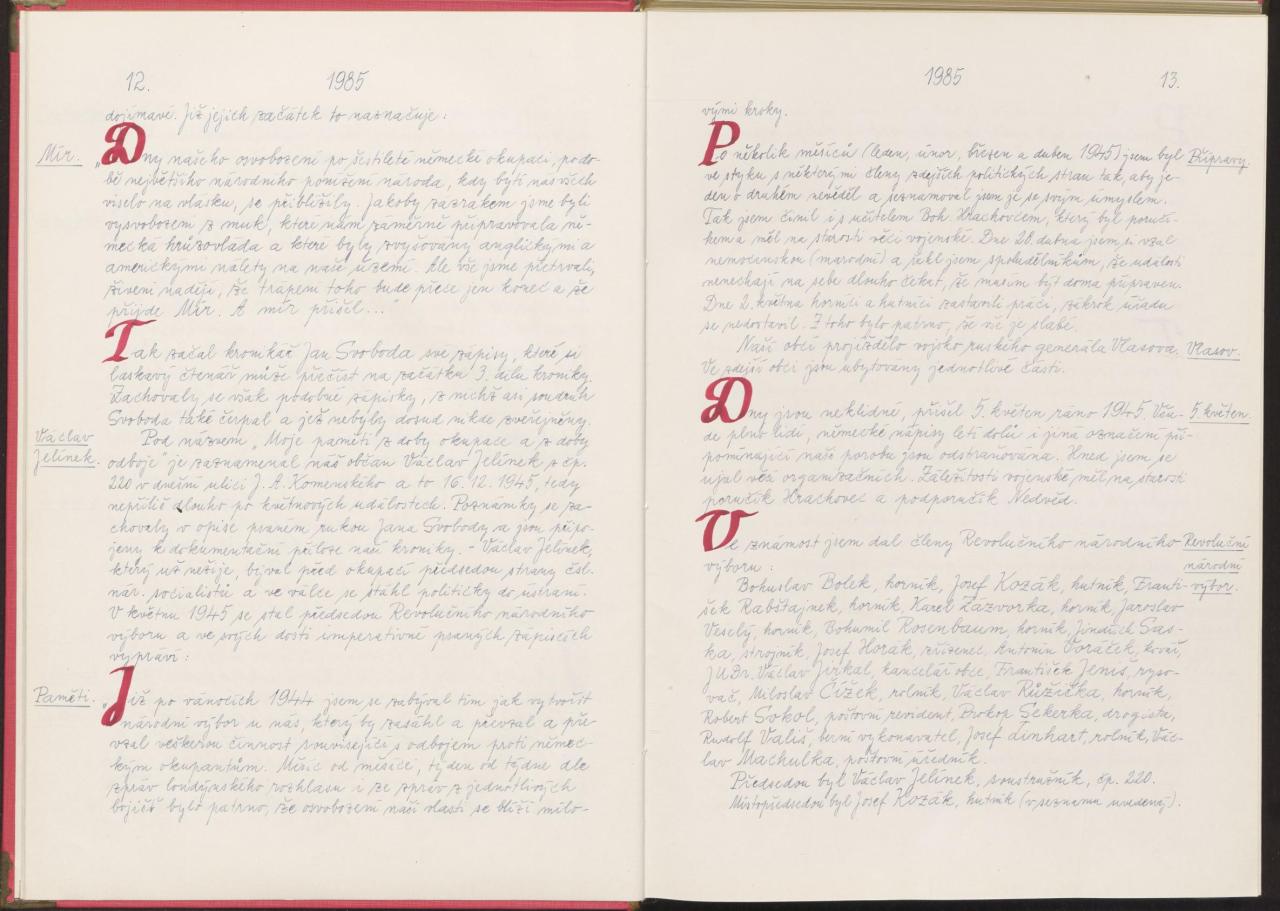 12. 1985
dojímavé. Již jejich začátek to naznačuje:
Mír. „Dny našeho osvobození po šestileté německé okupaci, podo-
bě největšího národního ponížení národa, kdy bytí nás všech
viselo na vlásku, se přiblížily. Jakoby zázrakem jsme byli
vysvobozeni z muk, které nám záměrně připravovala ně-
mecká hrůzovláda a které byly zvyšovány anglickými a
americkými nálety na naše území. Ale vše jsme přetrvali,
živeni nadějí, že trapem toho bude přece jen konec a že
přijde Mír. A mír přišel...
Tak začal kronikář Jan Svoboda své zápisy, které si
laskavý čtenář může přečíst na začátku 3. dílu kroniky.
Zachovaly se však podobné zápisky, z nichž asi soudruh
Svoboda také čerpal a jež nebyly dosud nikde zveřejněny.
Václav Jelínek.
Pod názvem „Moje paměti z doby okupace a z doby
odboje" je zaznamenal náš občan Václav Jelínek z čp.
220 v dnešní ulici J. A. Komenského a to 16. 12. 1945, tedy
nepříliš dlouho po květnových událostech. Poznámky se za-
chovaly v opise psaném rukou Jana Svobody a jsou připo-
jeny k dokumentační příloze naší kroniky. - Václav Jelínek,
který už nežije, býval před okupací předsedou strany čsl.
nár. socialistů a ve válce se stáhl politicky do ústraní.
V květnu 1945 se stal předsedou Revolučního národního
výboru a ve svých dosti imperativně psaných zápiscích
vypráví:
Paměti. „Již po vánocích 1944 jsem se zabýval tím jak vytvořit
národní výbor u nás, který by zasáhl a převzal a pře-
vzal veškerou činnost související s odbojem proti němec-
kým okupantům. Měsíc od měsíce, týden od týdne dle
zpráv londýnského rozhlasu i ze zpráv z jednotlivých
bojišť bylo patrno, že osvobození naší vlasti se blíží mílo-
1985 13.
vými kroky.
Po několik měsíců (leden, únor, březen a duben 1945) jsem byl Přípravy.
ve styku s některými členy zdejších politických stran tak, aby je-
den o druhém nevěděl a seznamoval jsem je se svým úmyslem.
Tak jsem činil i s učitelem Boh. Hrachovcem, který byl poručí-
kem a měl na starosti věci vojenské. Dne 20. dubna jsem si vzal
nemocenskou (marodní) a řekl jsem spoludělníkům, že události
nenechají na sebe dlouho čekat, že musím být doma připraven.
Dne 2. května horníci a hutníci zastavili práci, zákrok úřadu
se nedostavil. Z toho bylo patrno, že vše je slabé.
Naší obcí projíždělo vojsko ruského generála Vlasova. Vlasov.
Ve zdejší obci jsou ubytovány jednotlivé části.
Dny jsou neklidné, přišel 5. květen ráno 1945. Vše- 5. květen.
de plno lidí, německé nápisy letí dolů i jiná označení při-
pomínající naši porobu jsou odstraňována. Hned jsem se
ujal věcí organizačních. Záležitosti vojenské měl na starosti
poručík Hrachovec a podporučík Nedvěd.
Ve známost jsem dal členy Revolučního národního Revoluční
výboru: národní
Bohuslav Bolek, horník, Josef Kozák, hutník, Franti- výbor.
šek Rabštajnek, horník, Karel Zázvorka, horník, Jaroslav
Veselý, horník, Bohumil Rosenbaum, horník, Jindřich Sas-
ka, strojník, Josef Horák, zřízenec, Antonín Voráček, kovář,
JUDr. Václav Jirkal, kancelář obce, František Jeniš, ryso-
vač, Miloslav Čížek, rolník, Václav Růžička, horník,
Robert Sokol, poštovní revident, Prokop Sekerka, drogista,
Rudolf Vališ, berní vykonavatel, Josef Linhart, rolník, Vác-
lav Machulka, poštovní úředník.
Předsedou byl Václav Jelínek, soustružník, čp. 220.
Místopředsedou byl Josef Kozák, hutník (v seznamu uvedený).